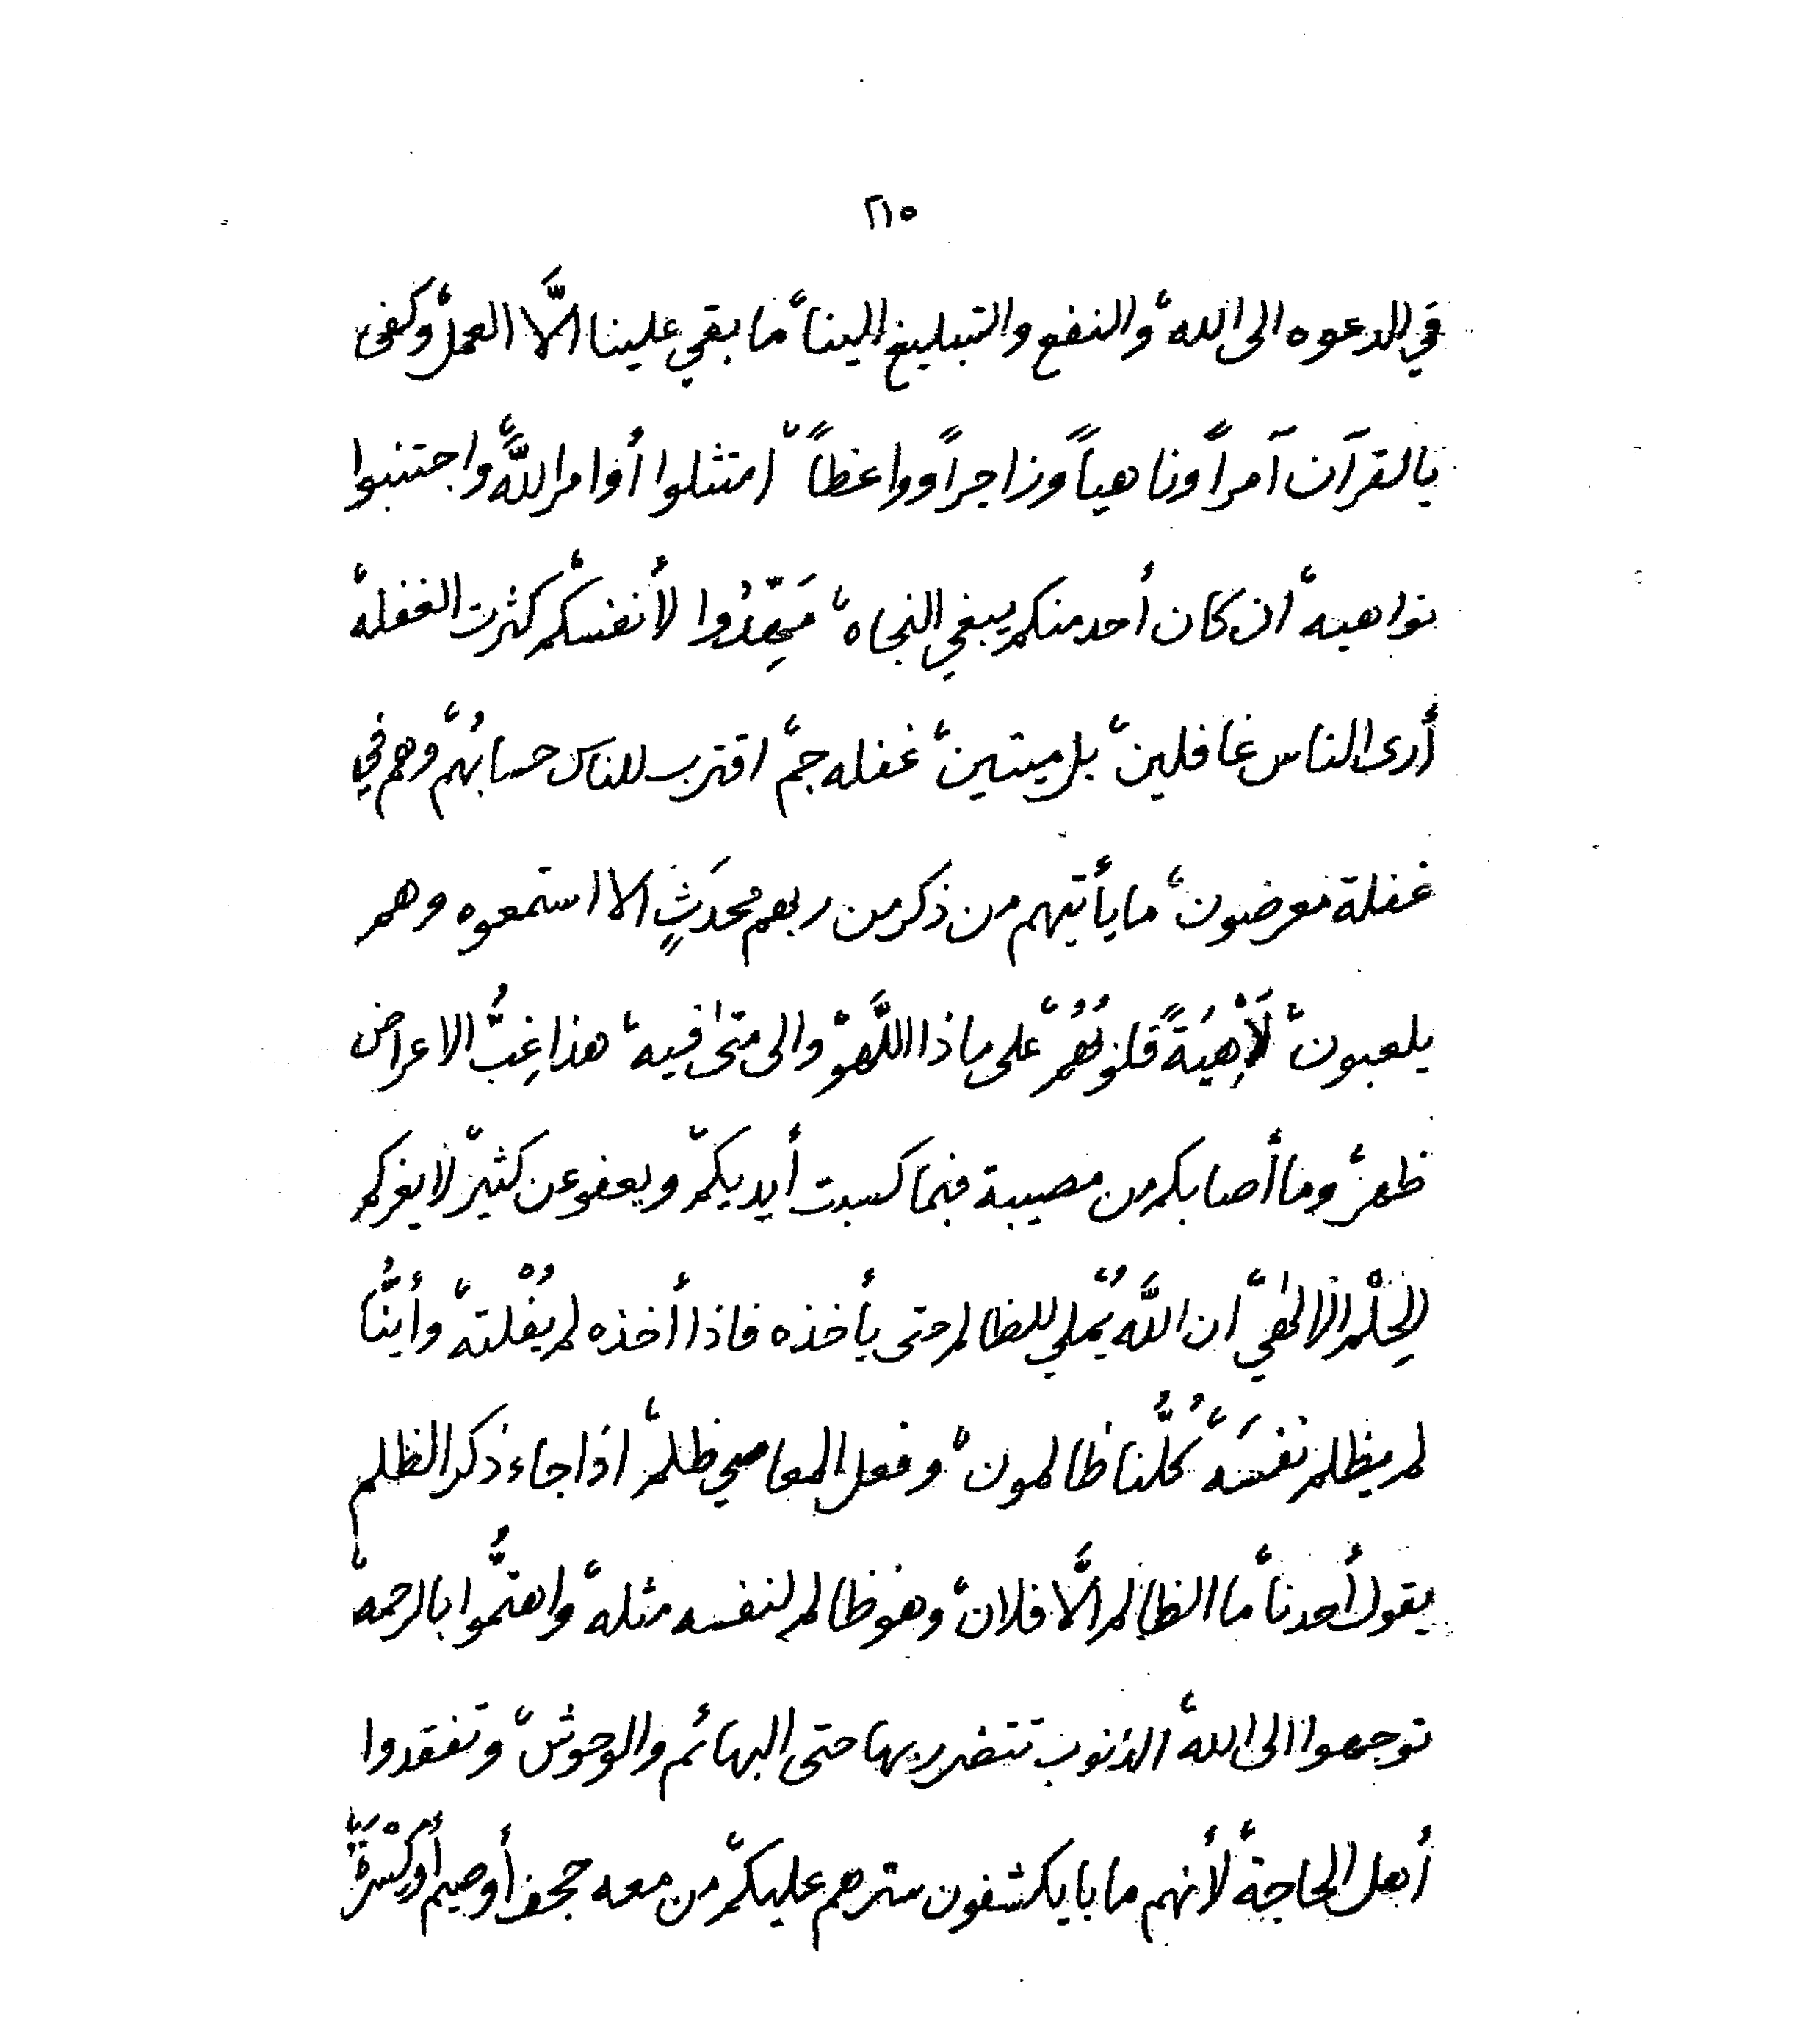 ٢١٥
في الدعوه الى الله، والنفع والتبليغ الينا، ما بقي علينا الَّا العمل، وكفى
بالقرآن آمراً وناهياً وزاجراً وواعظاً، امتثلوا أوامر اللَّه، واجتنبوا
نواهيه، ان كان أحد منكم يبغي النجاه، مَهِّدُوا لأنفسكم، كثرت الغفله،
أرى الناس غافلين، بل ميتين، غفله جمّ، اقترب للناس حسابُهم، وهم في
غفلة معرضون، ما يأتيهم من ذكر من ربهم محدَثٍ الا استمعوه وهم
يلعبون، لَاْهِيَةً قلوبُهُم، على ماذا اللَّهو، والى متى فيه، هذا غِبُّ الاعراض
ظهر، وما أصابكم من مصيبة فبما كسبت أيديكم، ويعفو عن كثير، لا يغركم
الحِلْم الالهي، ان اللَّه يُملي للظالم حتى يأخذه فاذا أخذه لم يُفْلته، وأيُّنا
لم يظلم نفسَه، كُلُّنا ظالمون، وفعل المعاصي ظلم، اذا جاء ذكر الظلم
يقول أحدنا، ما الظالم الَّا فلان، وهو ظالم لنفسه مثله، واهتمُّوا بالرحمه،
توجهوا الى الله، الذنوب تتضرر بها حتى البهائم والوحوش، وتفقدوا
أهل الحاجة، لأنهم ما با يكشفون سترهم عليكم، من معه جحف أو صيم أو كِسْرَةٌ،